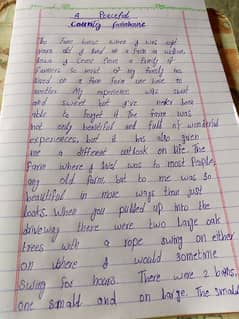 A Peaceful
County farmhome
The Farm house where I was eight
years old, I lived at a farm in
Iowa. I come from a family of
farmers so most of my family has
lived on a farm form one time to
another. My experience was short
and sweet but I've never been
able to forget it The Farm was
not only beautiful and full of wonderful
experiences, but it has also given
me a different out look on life. The
Farm where I lived was to most People,
any old farm, but to me was so
beautiful in more ways than just
looks. When you pulled up into the
driveway there were two large oak
trees with a rope swing on either
on where I would sometime
Swing for hours. There were 2 barns,
one small and on large. The small